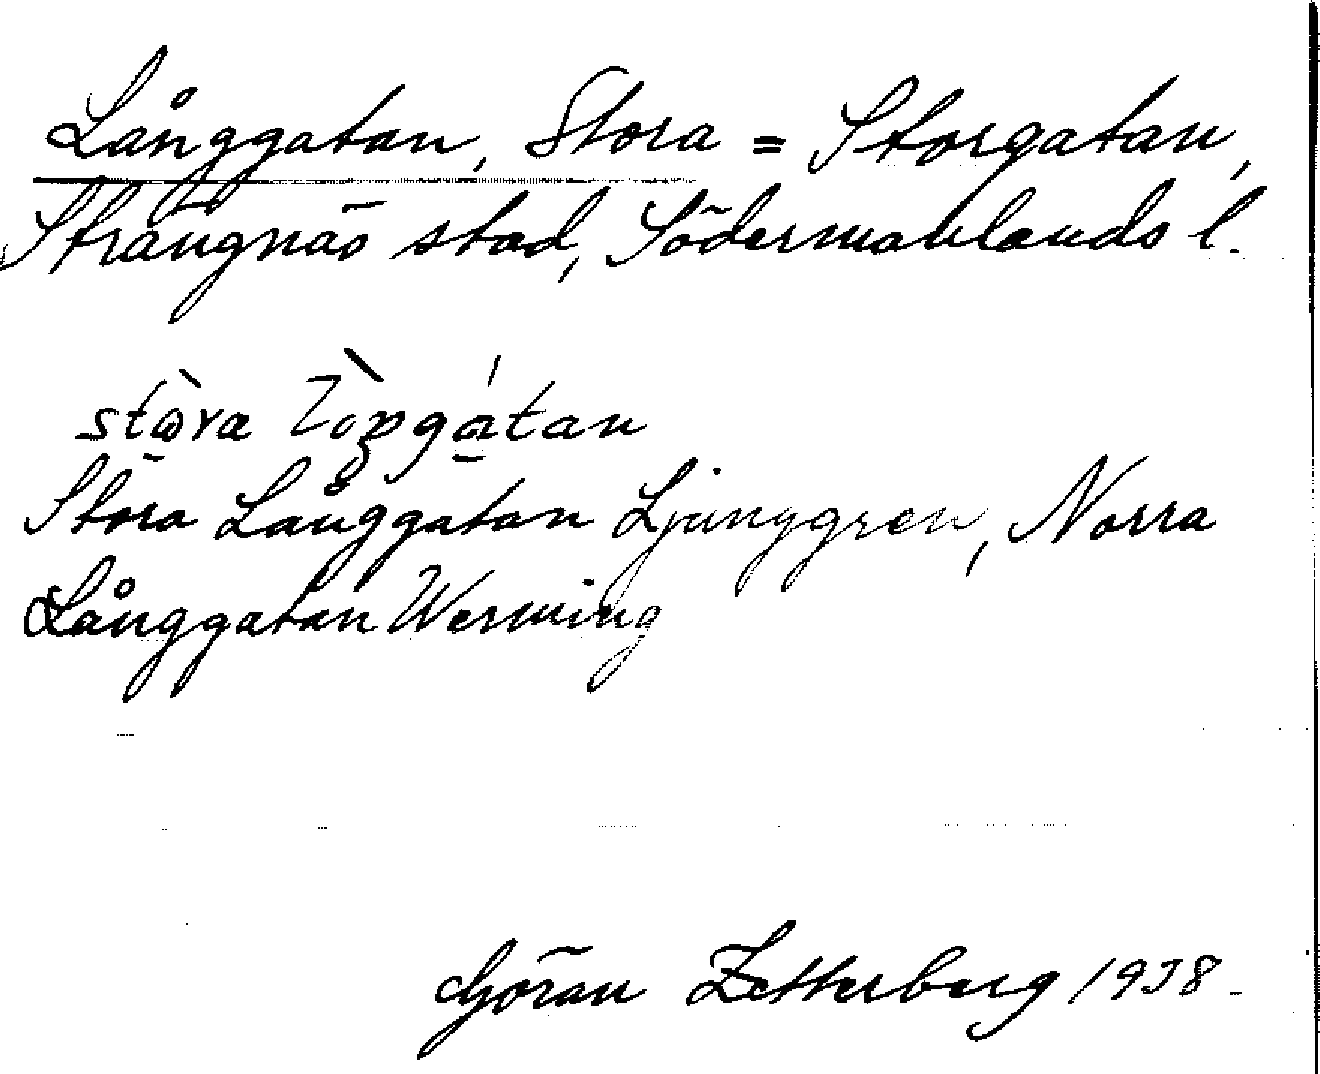 Långgatan, Stora = Storgatan,
Strängnäs stad, Södermanlands l.
Stora Långgatan Ljunggren, Norra
Långgatan Werming
Göran Zetterberg 1938.